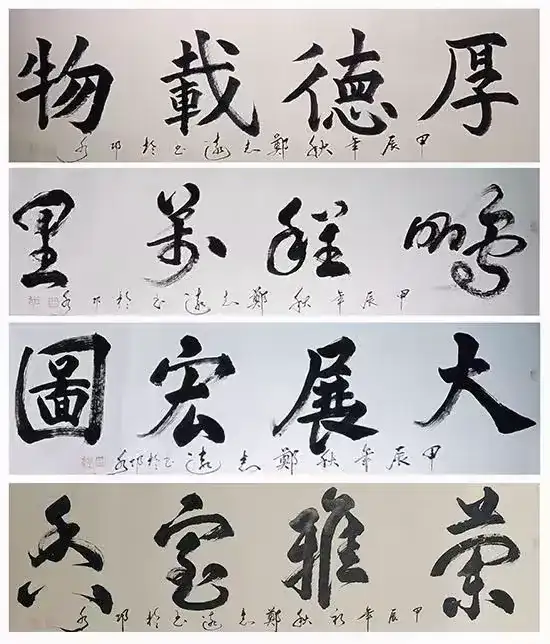 厚德載物
甲辰年秋鄭志遠书於邛水
鵬程萬里
甲辰年秋鄭志遠书於邛水
大展宏圖
甲辰年秋鄭志遠书於邛水
蘭雅室香
甲辰年初秋鄭志遠书於邛水